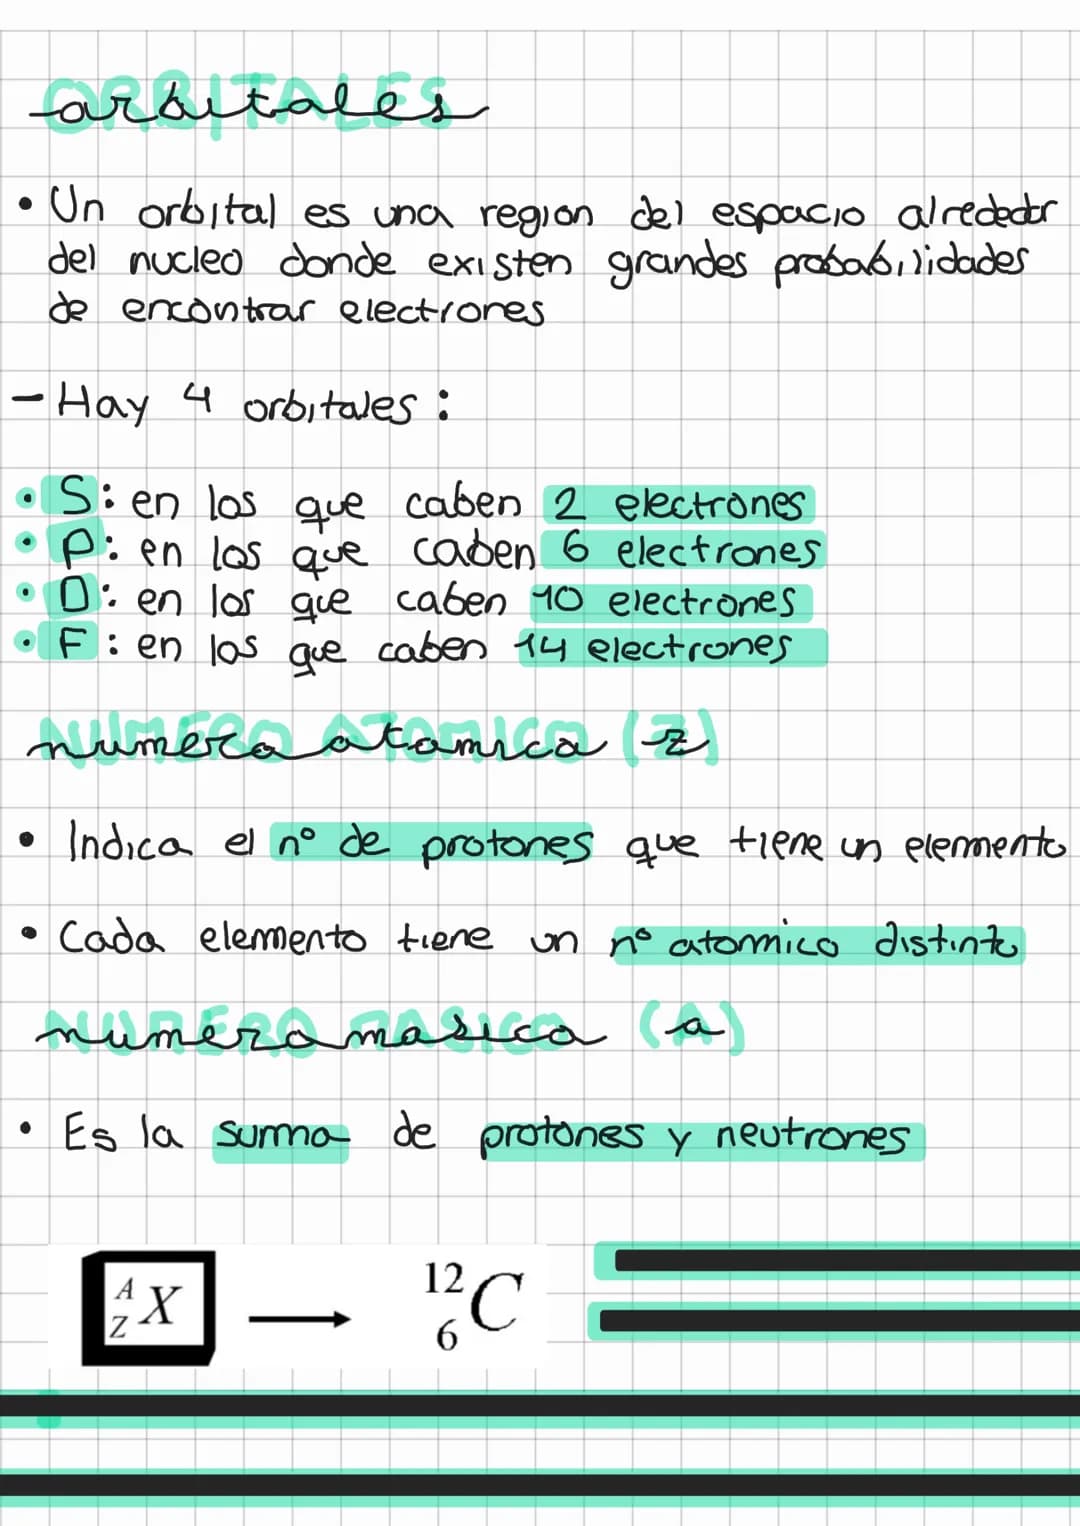 orbitales
• Un orbital es una region del espacio alrededor
del nucleo donde existen grandes probabilidades
de encontrar electrones
- Hay 4 orbitales:
• S: en los que caben 2 electrones
• P: en los que caben 6 electrones
• D: en los que caben 10 electrones
• F: en los que caben 14 electrones
numero atomico (z)
• Indica el nº de protones que tiene un elemento
• Cada elemento tiene un nº atomico distinto
numero masico (a)
• Es la suma de protones y neutrones
A Z X → 12 6 C